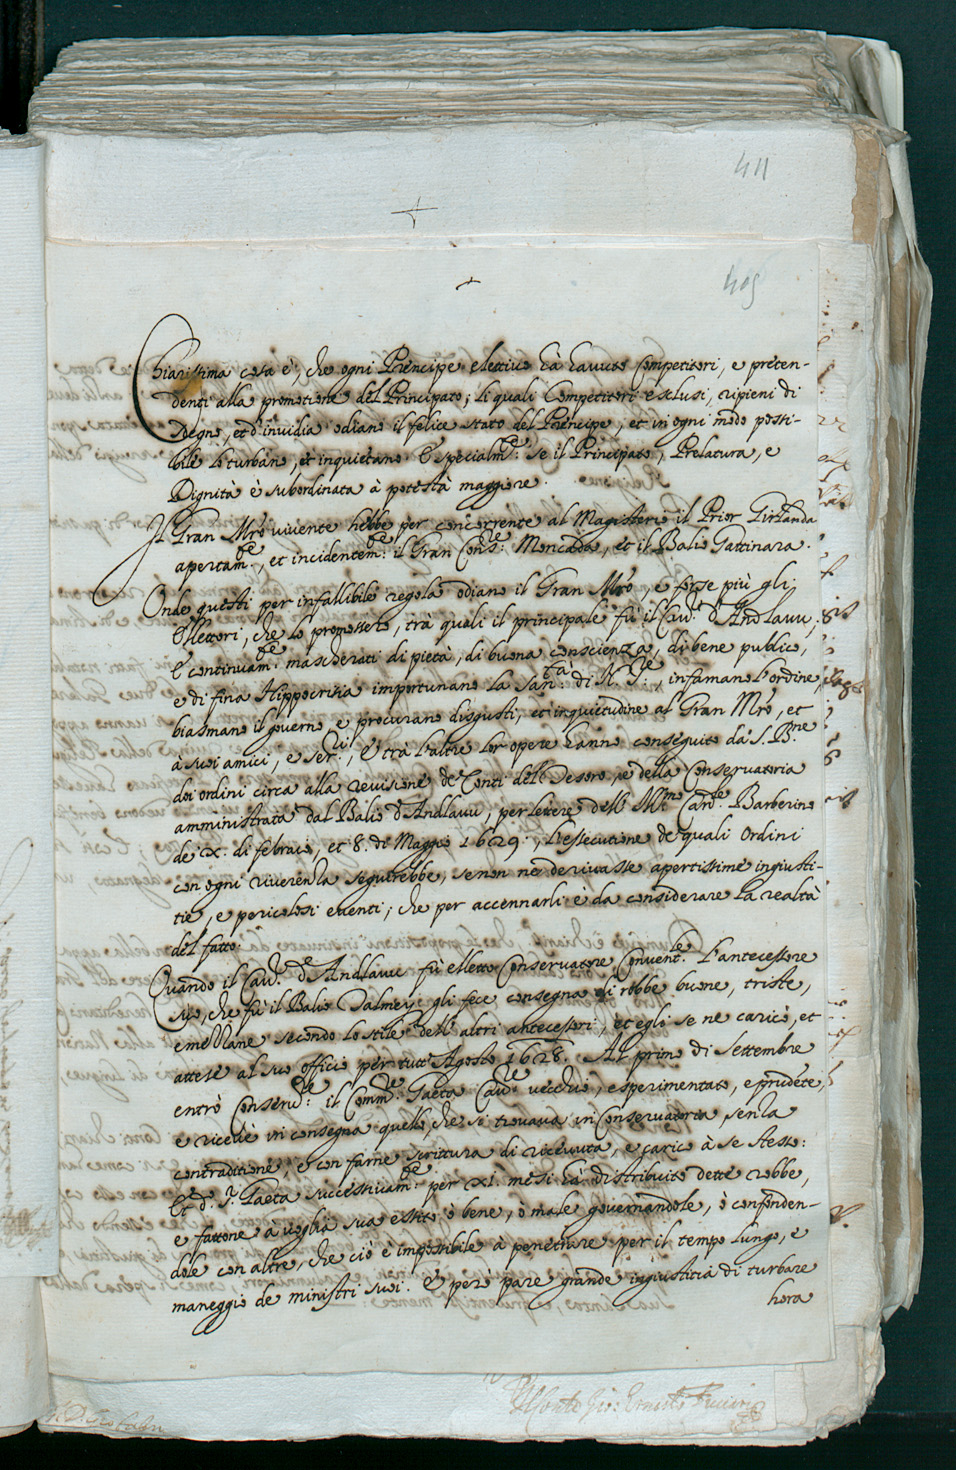 411
405
Chiarissima cosa è, che ogni Prencipe elettivo hà havuto Competitori, e preten-
denti alla promotione del Principato; li quali Competitori esclusi, ripieni di
sdegno, et d'invidia odiano il felice stato del Prencipe, et in ogni modo possi-
bile lo turbano, et inquietano. E specialmte: se il Principato, Prelatura, e
Dignità è subordinata à potestà maggiore.
Il Gran Mro vivente hebbe per concorrente al Magisterio il Prior Girlanda
apertamte:, et incidentemte: il Gran Conse: Moncada, et il Balio Gattinara.
Onde questi per infallibile regola odiano il Gran Mro, e forse più gli
Ellettori, che lo promossero, trà quali il principale fù il Cavre d'Andlauu;
E continuamte: mascherati di pietà, di buona conscienza, di bene publico,
e di fina Hippocrisia importunano la Santà: di N. Sre:, infamano l'ordine,
biasmano il governo, e procurano disgusti, et inquietudine al Gran Mro, et
à suoi amici, e servi:, E trà l'altre lor opere hanno conseguito da S. Bne
doi ordini circa alla revisione de Conti del Tesoro, e della Conservatoria
amministrata dal Balio d'Andlauu, per lettere dell' Illmo Carde: Barberino
de x. di febraio, et 8. di Maggio 1629., l'essecutione de quali Ordini
con ogni riverenza seguirebbe, se non ne derivasse apertissime ingiusti-
tie, e pericolosi eventi; che per accennarli è da considerare la realtà
del fatto.
Quando il Cavre d'Andlauu fù elletto Conservatore Conventle: l'antecessore
suo, che fù il Balio Talmey gli fece consegna di robbe buone, triste,
e mezzane secondo lo stile dell' altri antecessori, et egli se ne caricò, et
attese al suo officio per tutt' Agosto 1628. Al primo di Settembre
entrò Conservre: il Commre: Gaeta Cavre vecchio, esperimentato, e prudete,
e ricevè in consegna quello, che si trovava in Conservatoria senza
contraditione, e con farne scrittura di ricevuta, e carico à se stesso:
Et d. Sr. Gaeta successivamte: per xi. mesi hà distribuito dette robbe,
e fattone à voglia sua essito ò bene, ò male governandole, ò confonden-
dole con altre, che ciò è impossibile à penetrare per il tempo lungo, e
maneggio de ministri suoi. E però pare grande ingiustitia di turbare
hora